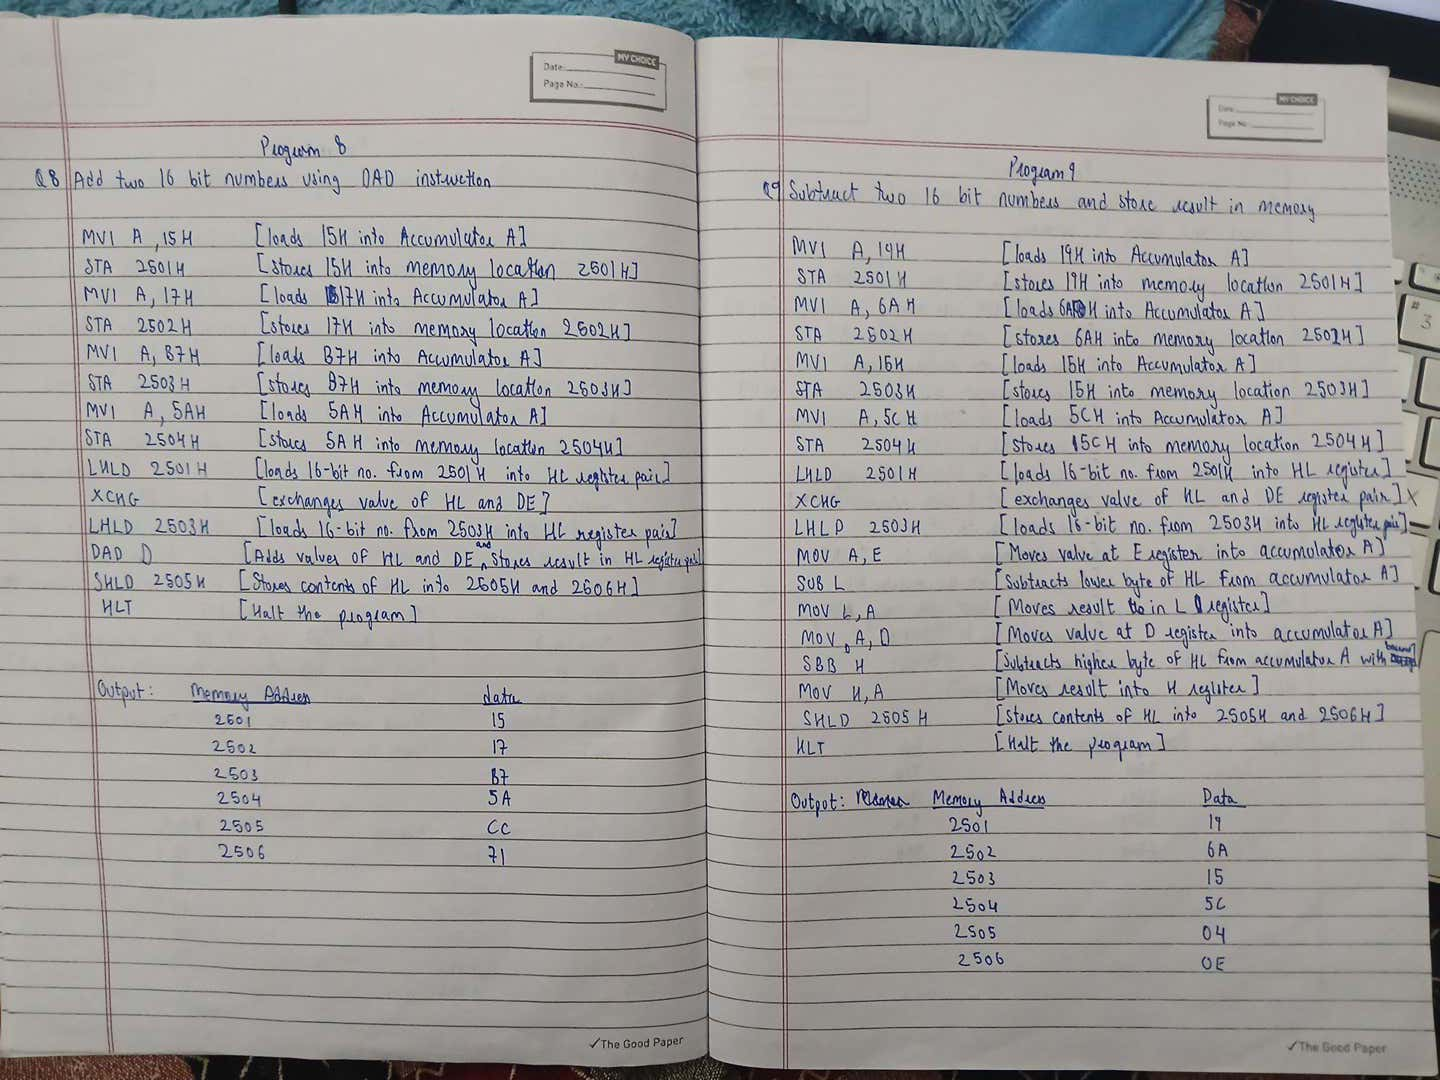 MY CHOICE
Date:
Page No.:
Program 8
Q8 Add two 16 bit numbers using DAD instruction
MVI A, 15H [loads 15H into Accumulator A]
STA 2501H [stores 15H into memory location 2501H]
MVI A, 17H [loads 17H into Accumulator A]
STA 2502H [stores 17H into memory location 2502H]
MVI A, B7H [loads B7H into Accumulator A]
STA 2503H [stores B7H into memory location 2503H]
MVI A, 5AH [loads 5AH into Accumulator A]
STA 2504H [stores 5AH into memory location 2504H]
LHLD 2501H [loads 16-bit no. from 2501H into HL register pair]
XCHG [exchanges value of HL and DE]
LHLD 2503H [loads 16-bit no. from 2503H into HL register pair]
DAD D [Adds values of HL and DE and stores result in HL register pair]
SHLD 2505H [Stores contents of HL into 2505H and 2506H]
HLT [Halt the program]
Output: Memory Address data
2501 15
2502 17
2503 B7
2504 5A
2505 CC
2506 71
✓The Good Paper
MY CHOICE
Date:
Page No.:
Program 9
Q9 Subtract two 16 bit numbers and store result in memory
MVI A, 19H [loads 19H into Accumulator A]
STA 2501H [stores 19H into memory location 2501H]
MVI A, 6AH [loads 6AH into Accumulator A]
STA 2502H [stores 6AH into memory location 2502H]
MVI A, 15H [loads 15H into Accumulator A]
STA 2503H [stores 15H into memory location 2503H]
MVI A, 5CH [loads 5CH into Accumulator A]
STA 2504H [stores 5CH into memory location 2504H]
LHLD 2501H [loads 16-bit no. from 2501H into HL register]
XCHG [exchanges value of HL and DE register pair]
LHLD 2503H [loads 16-bit no. from 2503H into HL register pair]
MOV A, E [Moves value at E register into accumulator A]
SUB L [Subtracts lower byte of HL from accumulator A]
MOV L, A [Moves result in L register]
MOV A, D [Moves value at D register into accumulator A]
SBB H [Subtracts higher byte of HL from accumulator A with borrow]
MOV H, A [Moves result into H register]
SHLD 2505H [stores contents of HL into 2505H and 2506H]
HLT [Halt the program]
Output: Memory Address Data
2501 19
2502 6A
2503 15
2504 5C
2505 04
2506 0E
✓The Good Paper
#
3